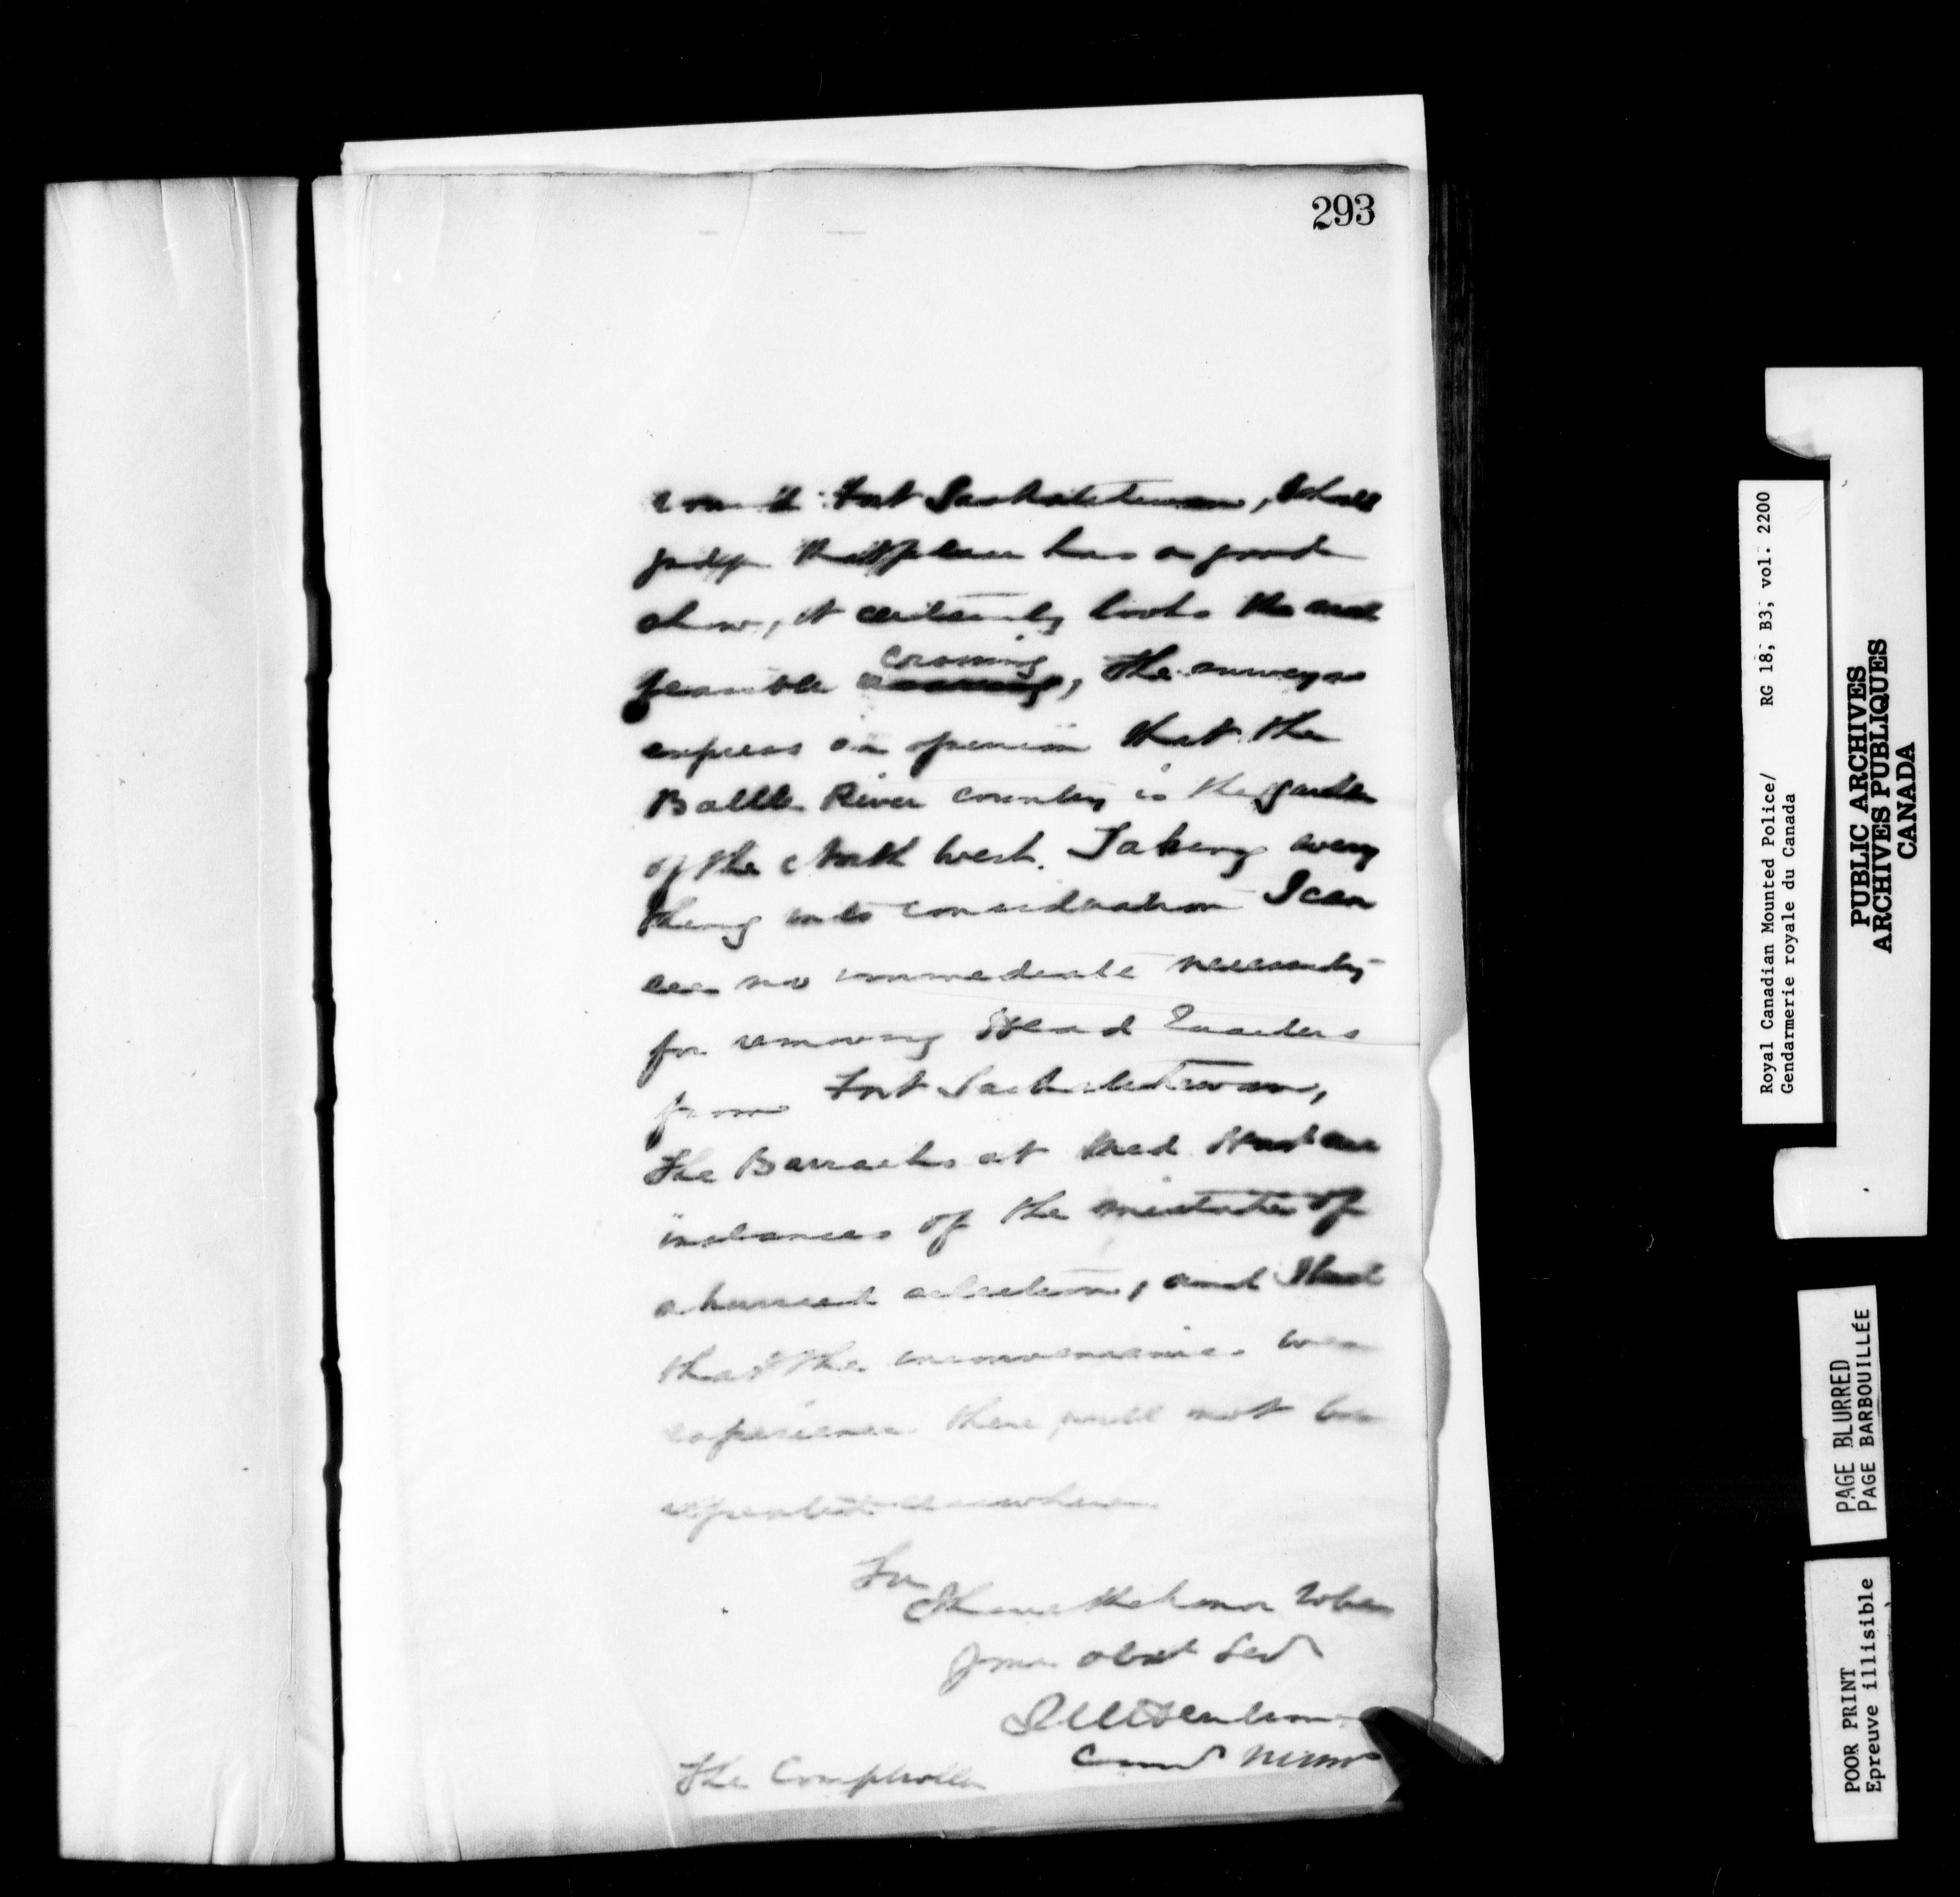 293
Fort Saskatchewan, I shall
judge that place has a good
show, it certainly looks the most
feasible crossing, The surveyors
express an opinion that the
Battle River country is the garden
of the North West. Taking every
thing into consideration I can
see no immediate necessity
for removing Head Quarters
from Fort Saskatchewan,
The Barracks at Med Hat are
instances of the mistake of
a hurried selection, and
that the inconvenience we
experience there will not be
repeated elsewhere.
I have the honor to be
Your obdt Servt
Commr NWMP
The Comptroller
Royal Canadian Mounted Police/ RG 18, B3, vol. 2200
Gendarmerie royale du Canada
PUBLIC ARCHIVES
ARCHIVES PUBLIQUES
CANADA
PAGE BLURRED
PAGE BARBOUILLÉE
POOR PRINT
Epreuve illisible